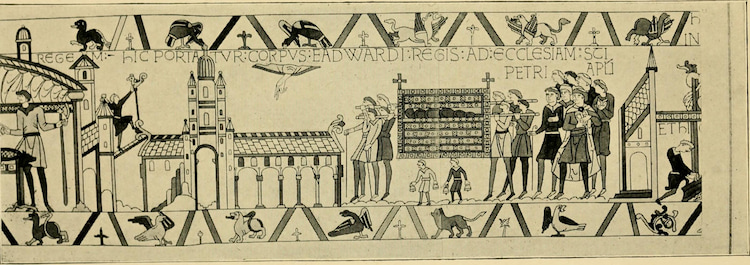 REGEM: HIC PORTATVR: CORPVS: EADWARDI: REGIS: AD: ECCLESIAM: SCI
PETRI APLI
h
IN
ETH